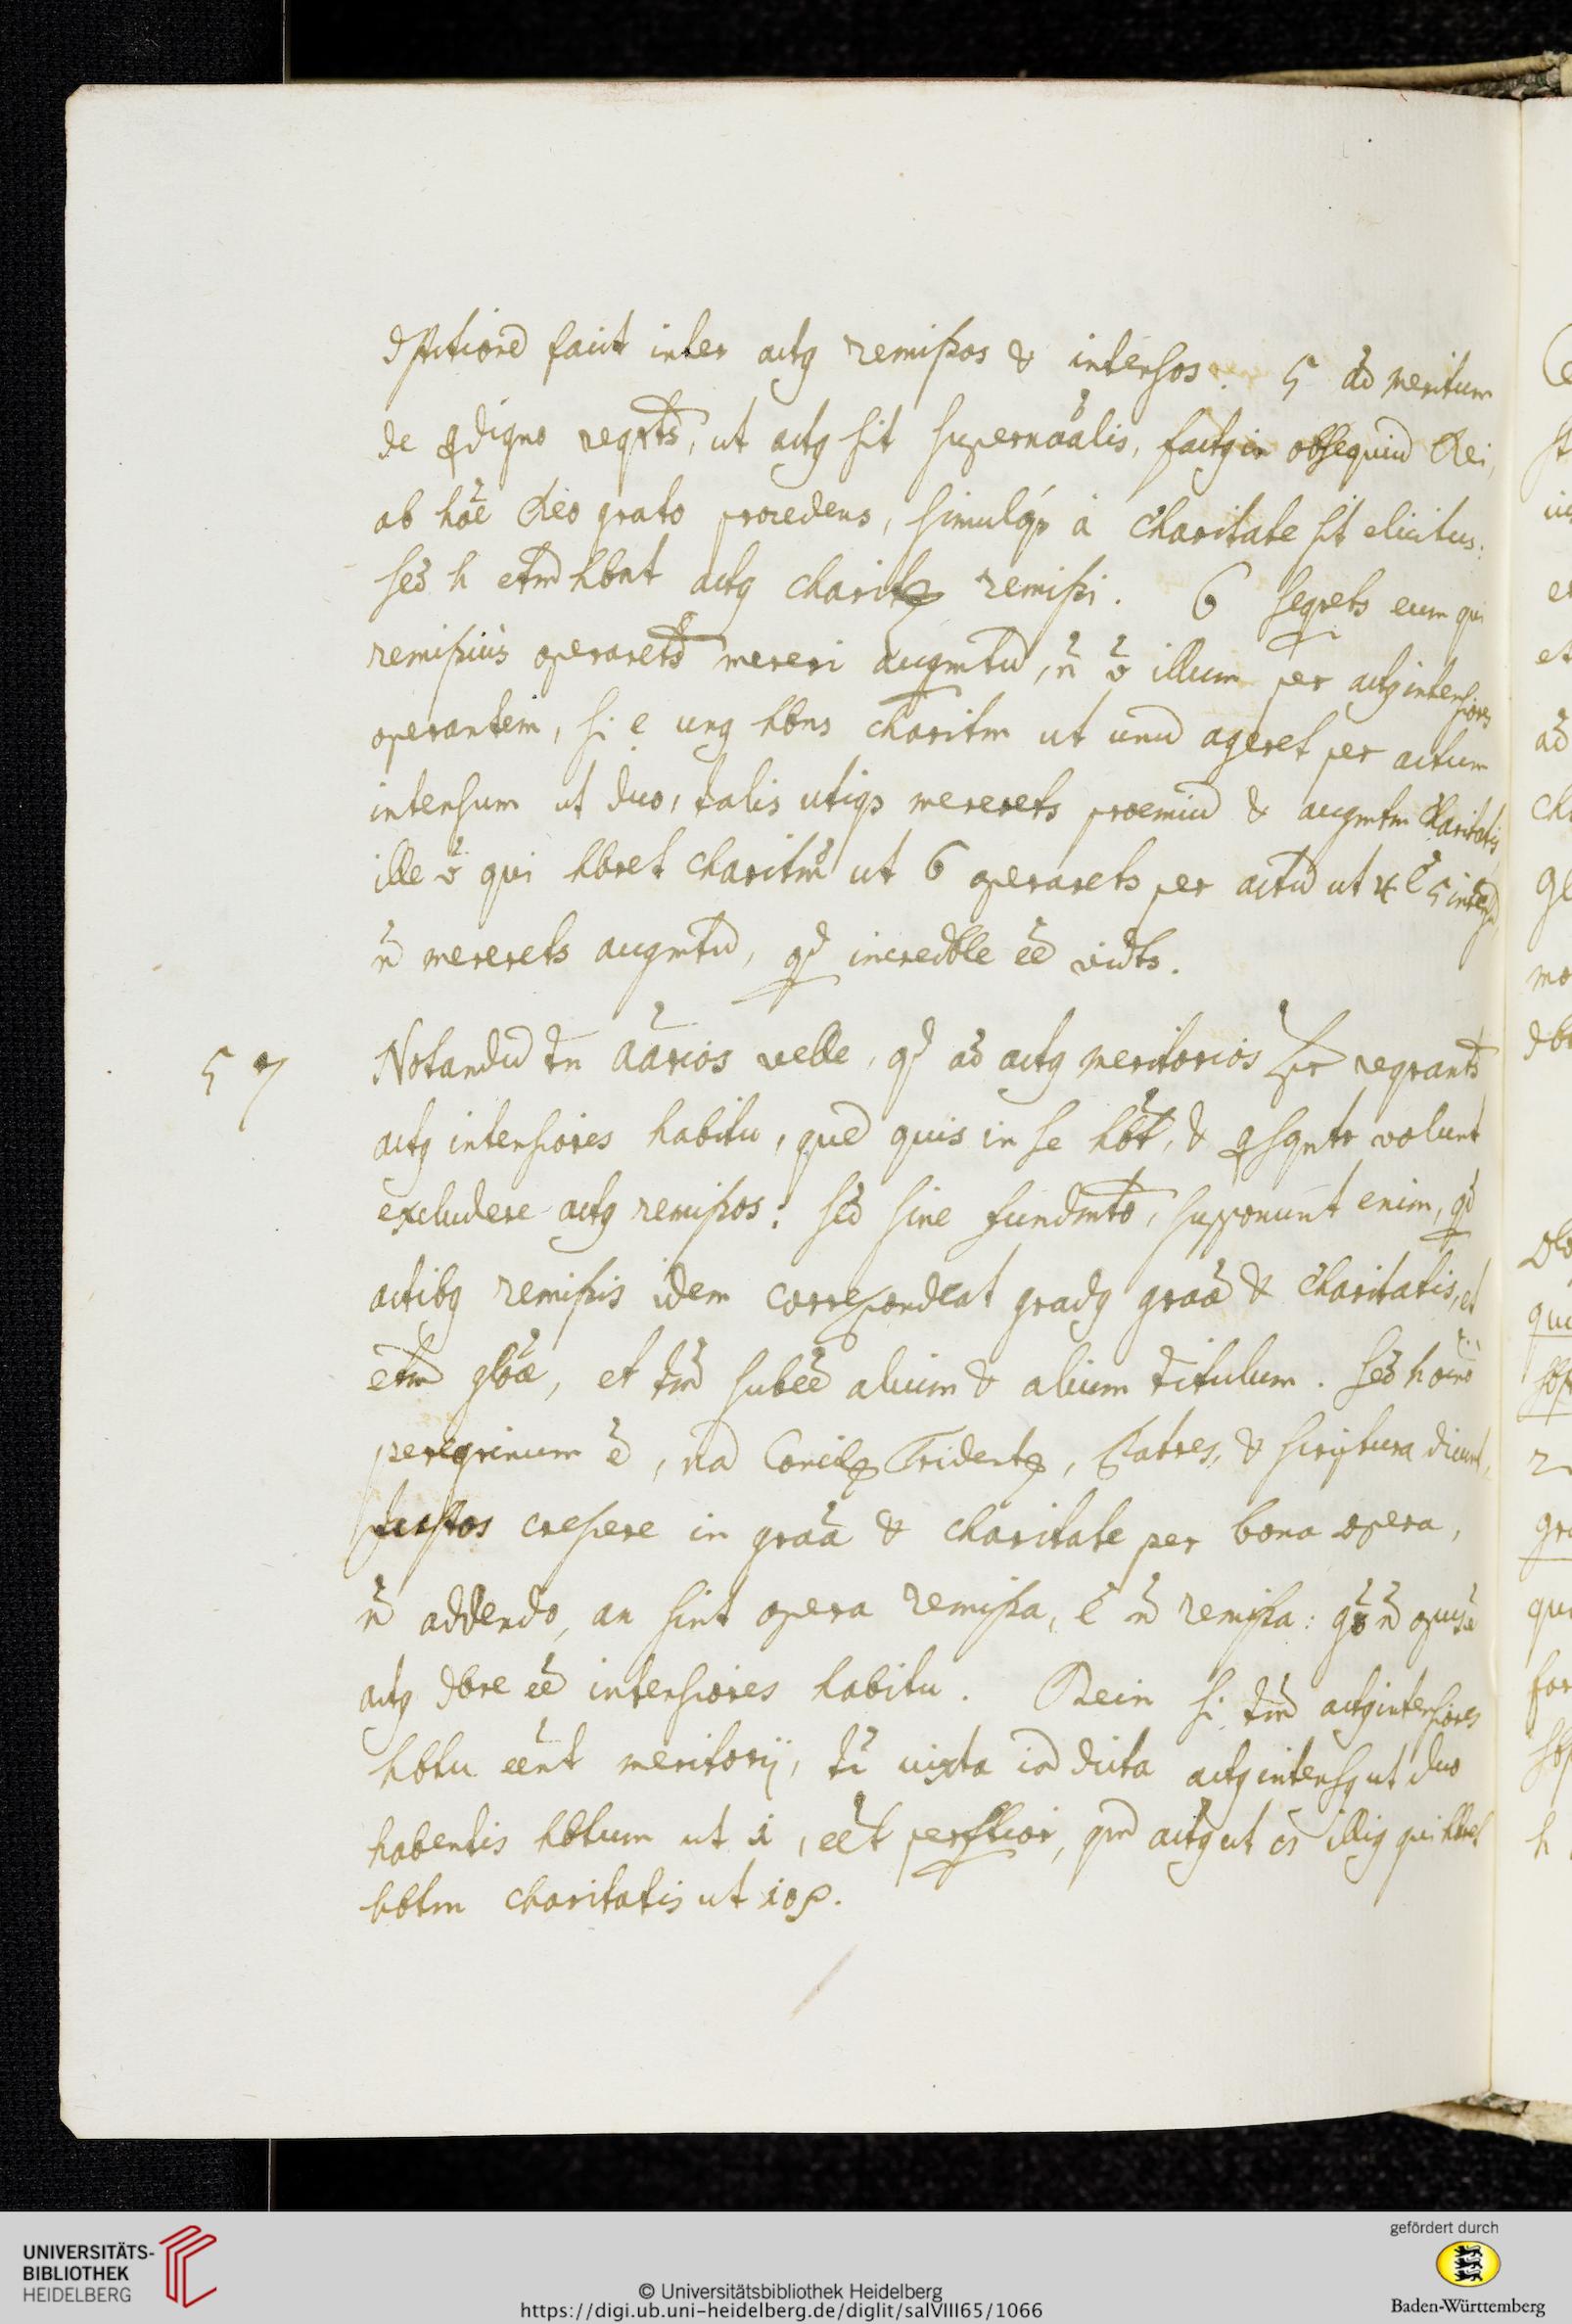 dstitione facit inter actq remissos & intensos. 5 ad meritum
de condigno reqrts, ut actq sit supernaalis, factq in obsequiu Dei,
ab hoe Deo grato procedens, simulqp à Charitate sit elicitus:
sed h etm hbnt actq charit remissi. 6 seqrets eum qui
remissius operarets mereri augmtu, n v illum per actq intensiores
operantem, si e unq hbns charitm ut unu ageret per actum
intensum ut duo, talis utiqp mererets proemiu & augmtm Charitatis
ille v qui hbret charitm ut 6 operarets per actu ut 4 l 5 intensu
n mererets augmtu, qd incredble ee vidts.
57 Notandu tn aarios velle, qd ad actq meritorios reqrants
actq intensiores habitu, que quis in se hbt, & consqntr volunt
excludere actq remissos: sed sine fundmto, supponunt enim, qd
actibq remissis idem correspondeat gradq graa & Charitatis, et
etm gloa, et tm subee alium & alium titulum. Sed h oino
peregrinum e, na Concil Trident, Patres, & scriptura dicunt,
justos crescere in graa & charitate per bona opera,
n addendo, an sint opera remissa, l n remissa: go n opus e
actq dbre ee intensiores habitu. Dein si tm actq intensiores
hbtu eent meritorij, tc iuxta ia dicta actq intensq ut duo
habentis hbtum ut 1, eet perfctior, qm actq ut illiq qui hbret
hbtm charitatis ut 10.
UNIVERSITÄTS-
BIBLIOTHEK
HEIDELBERG
© Universitätsbibliothek Heidelberg
https://digi.ub.uni-heidelberg.de/diglit/salVIII65/1066
gefördert durch
Baden-Württemberg